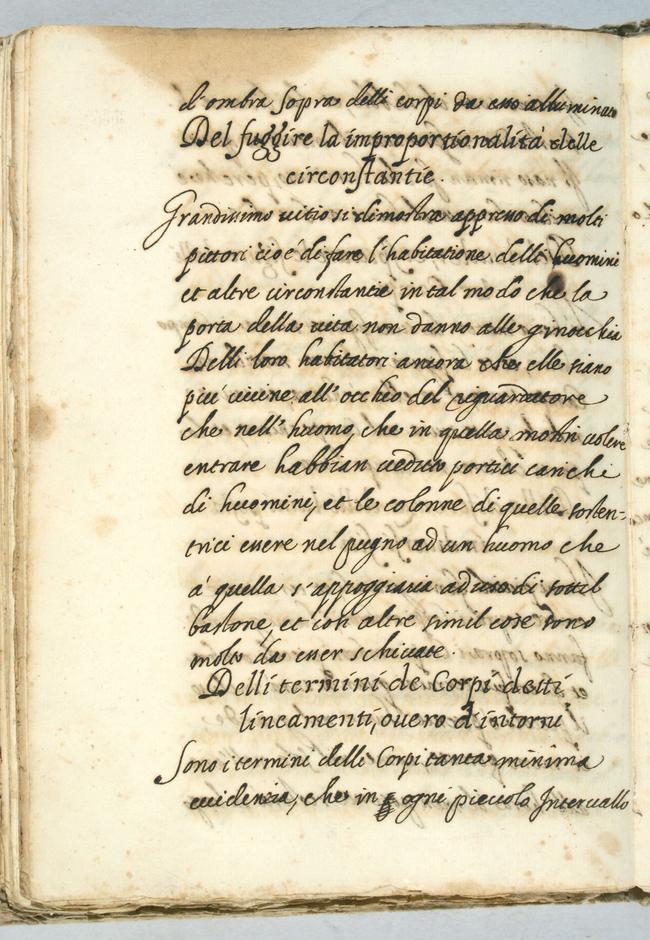 d'ombra sopra delli corpi da esso alluminato
Del fuggire la improportionalità delle
circonstantie.
Grandissimo vitio si dimostra appresso di molti
pittori cioé di fare l'habitatione delli huomini
et altre circonstantie in tal modo che la
porta della
non danno alle ginocchia
Delli loro habitatori ancora che elle siano
più vicine all'occhio del riguardatore
che nell'huomo, che in quella mostri volere
entrare habbian veduto portici carichi
di huomini, et le colonne di quelle sosten-
trici essere nel pugno ad un huomo che
á quella s'appoggiava ad uso di sottil
bastone, et con altre simil cose sono
molto da esser schivate.
Delli termini de Corpi detti
lineamenti, overo d'intorni
Sono i termini delli Corpi tanta minima
evidenzia, che in ogni piccolo Intervallo